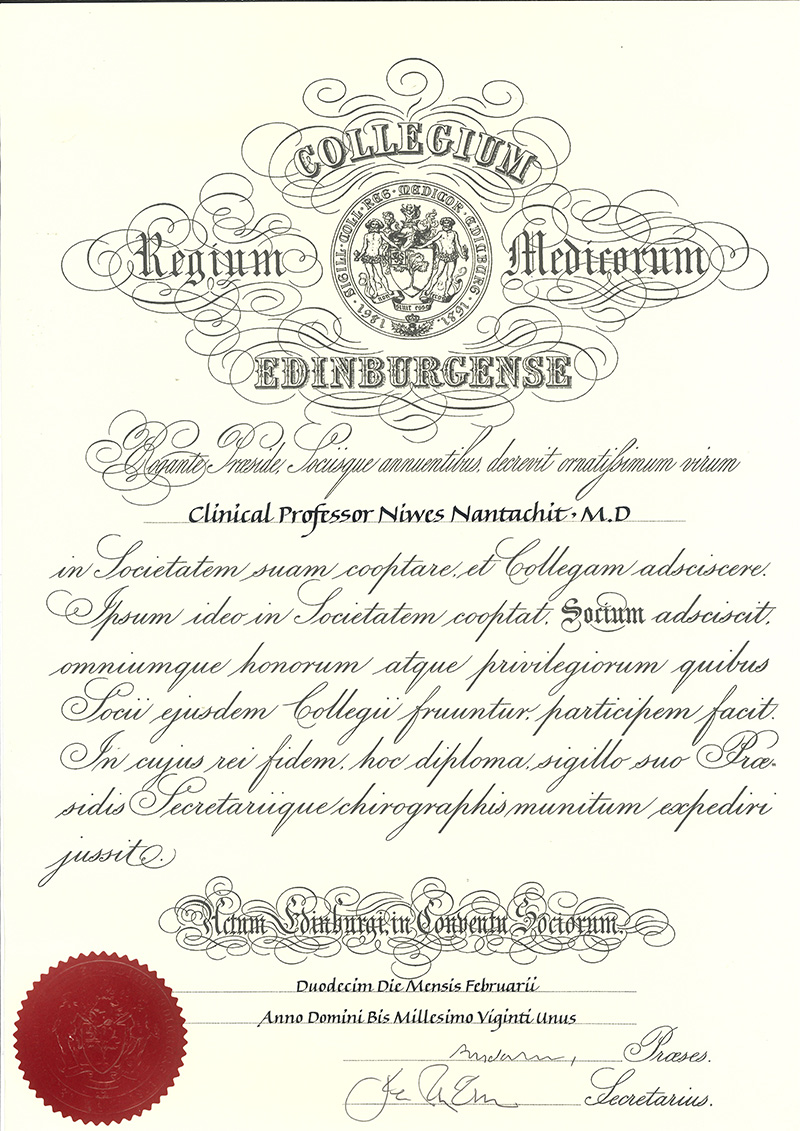 COLLEGIUM
Regium Medicorum
SIGILL·COLL·REG·MEDICOR·EDINBURG·1681·
EDINBURGENSE
Rogante Præside, Sociisque annuentibus, decrevit ornatissimum virum
Clinical Professor Niwes Nantachit · M.D
in Societatem suam cooptare, et Collegam adsciscere.
Ipsum ideo in Societatem cooptat, Socium adsciscit,
omniumque honorum atque privilegiorum quibus
Socii ejusdem Collegii fruuntur, participem facit.
In cujus rei fidem, hoc diploma, sigillo suo Præ-
sidis Secretariique chirographis munitum expediri
jussit.
Actum Edinburgi, in Conventu Sociorum,
Duodecim Die Mensis Februarii
Anno Domini Bis Millesimo Viginti Unus
Præses.
Secretarius.